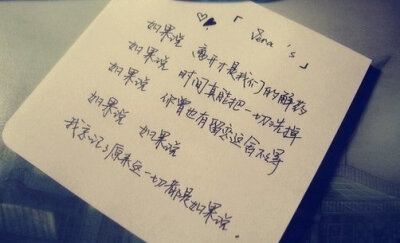 「Vena's」
如果说 离开才是我们的解药
如果说 时间真能把一切洗掉
如果说 你曾也有留恋过舍不得
如果说 如果说
我忘记了原来这一切都是如果说.